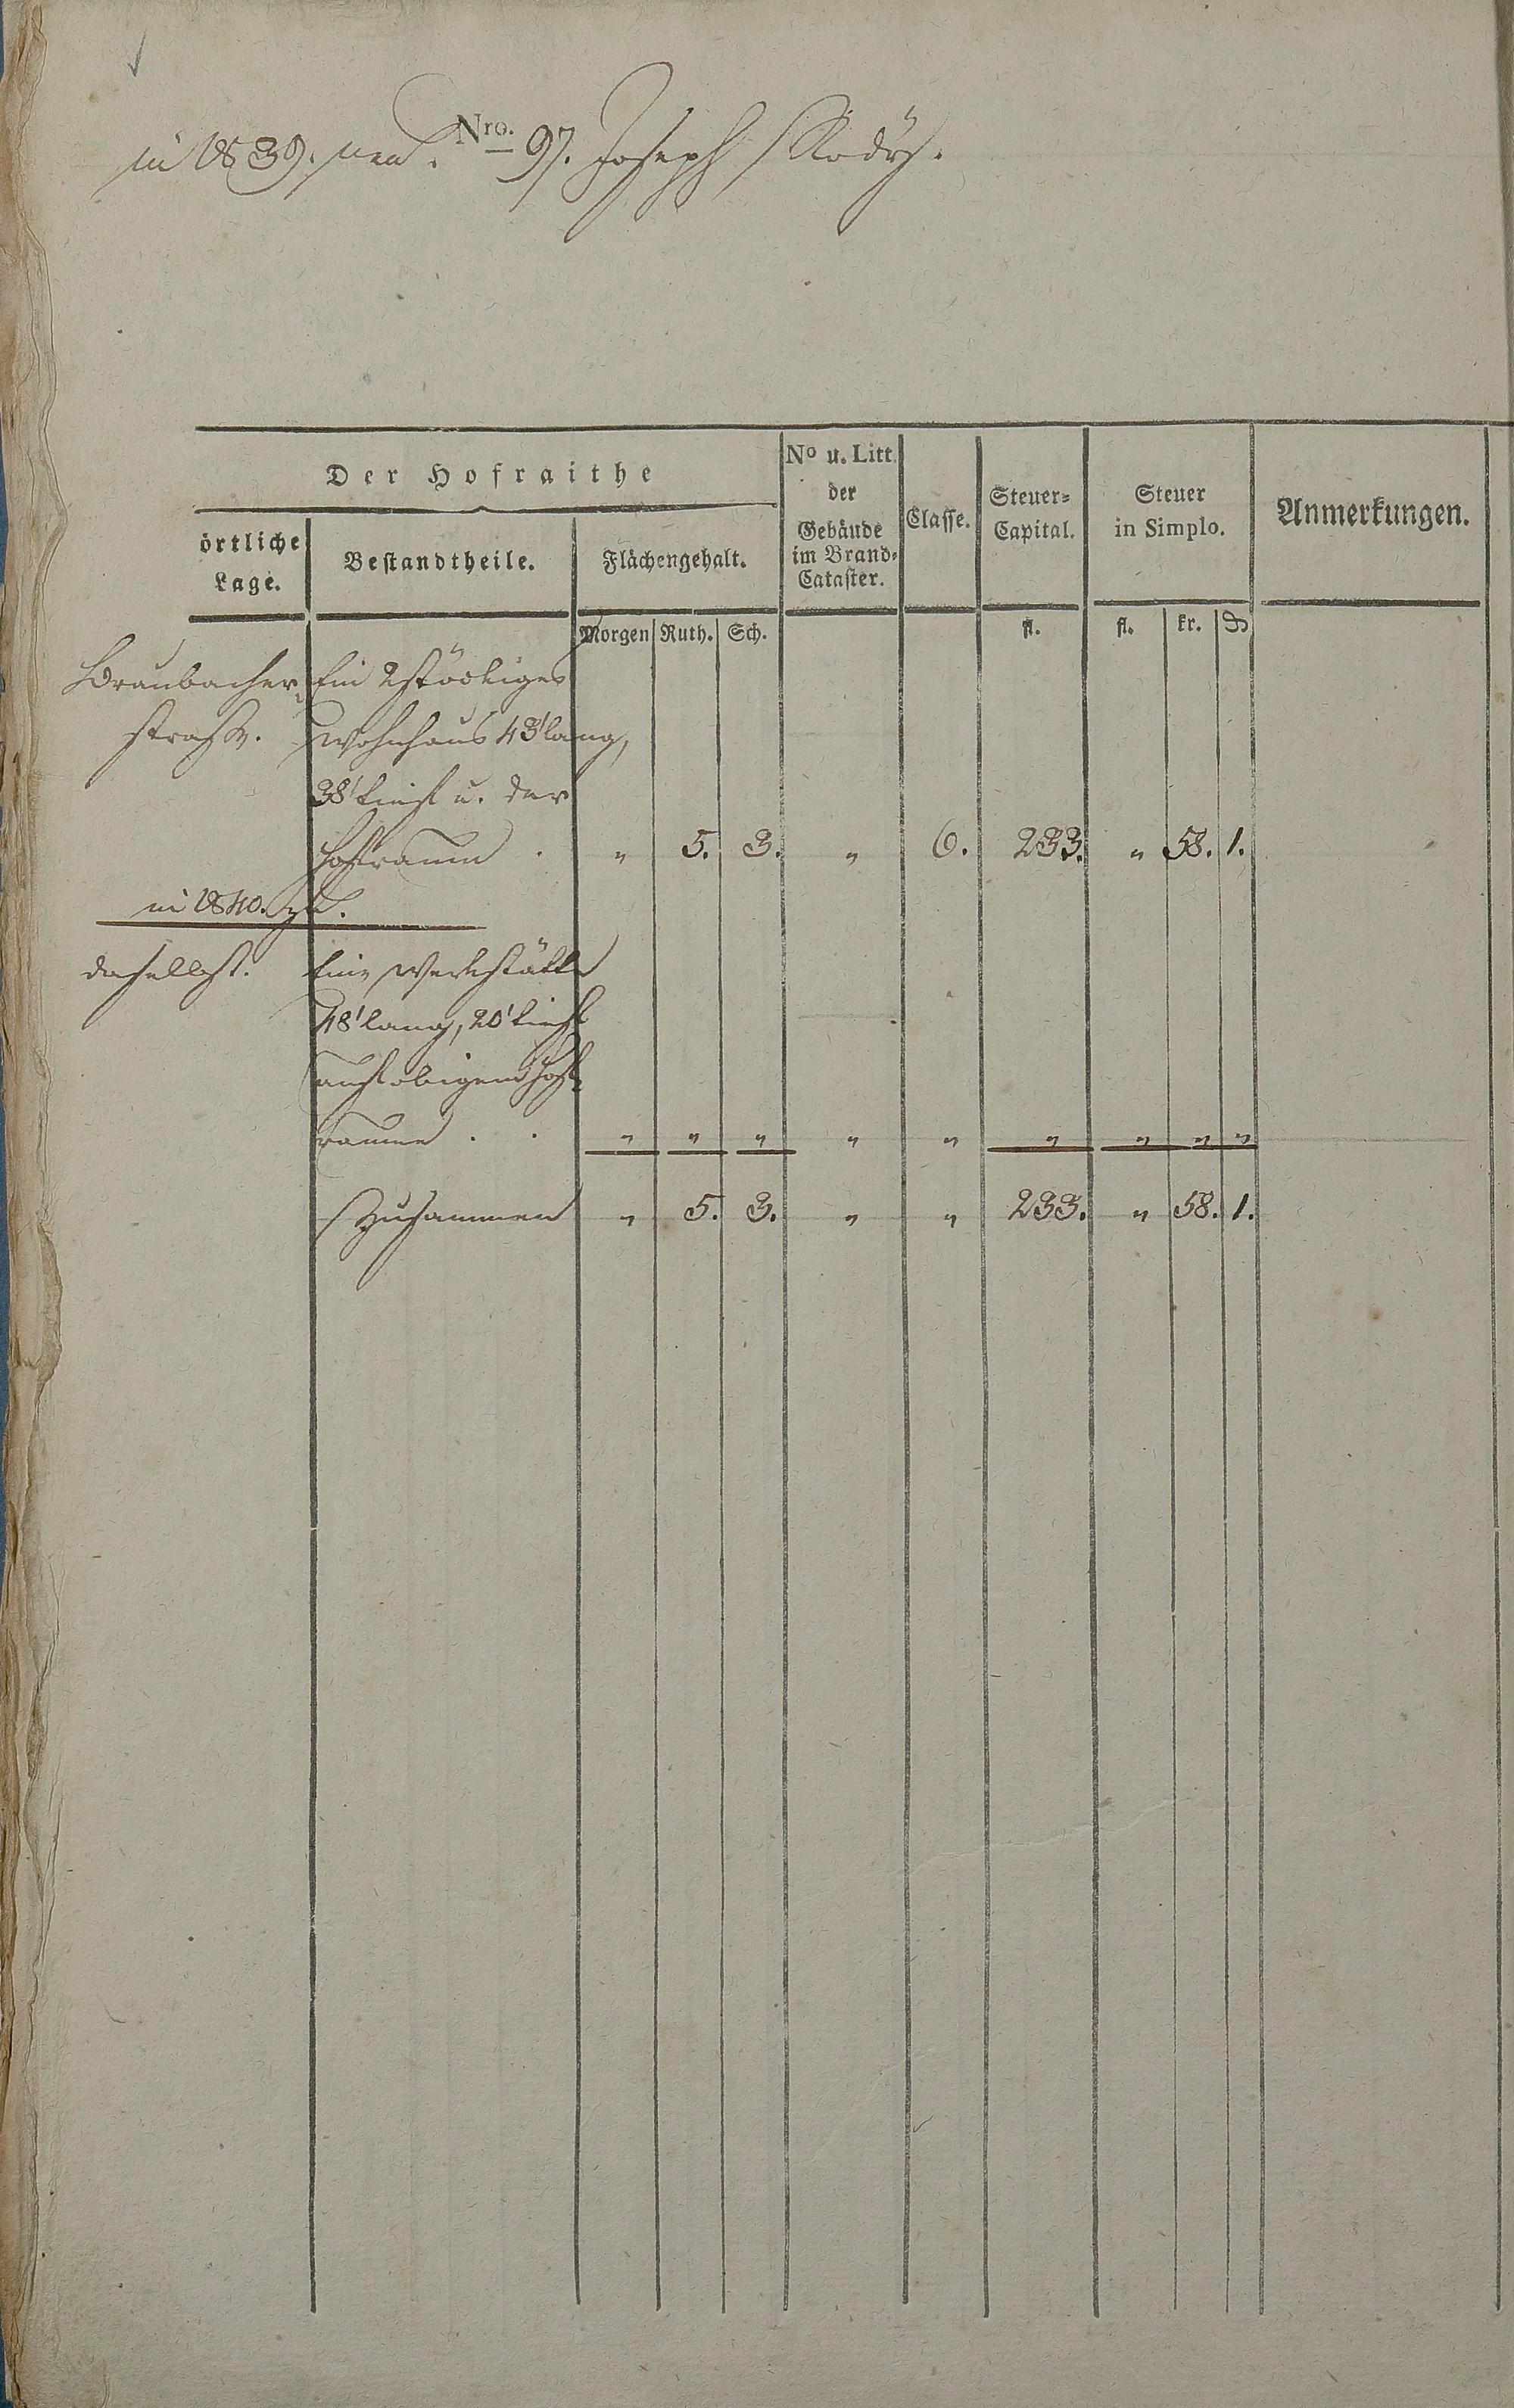 in 1839. neu. Nro. 97. Joseph
Der Hofraithe
örtliche Lage.
Bestandtheile.
Flächengehalt.
No u. Litt. der Gebäude im Brand-Cataster.
Classe.
Steuer-Capital.
Steuer in Simplo.
Anmerkungen.
Morgen Ruth. Sch. fl. fl. kr. ₰
Braubacher Ein 2stöckiges
straße. Wohnhaus 43' lang,
38' tief u. der
Hofraum . " 5. 3. " 6. 233. " 58. 1.
in 1840.
daselbst. Eine Werkstätte
48' lang, 20' tief
auf obigem Hof-
raume . . " " " " " " " " "
Zusammen " 5. 3. " " 233. " 58. 1.